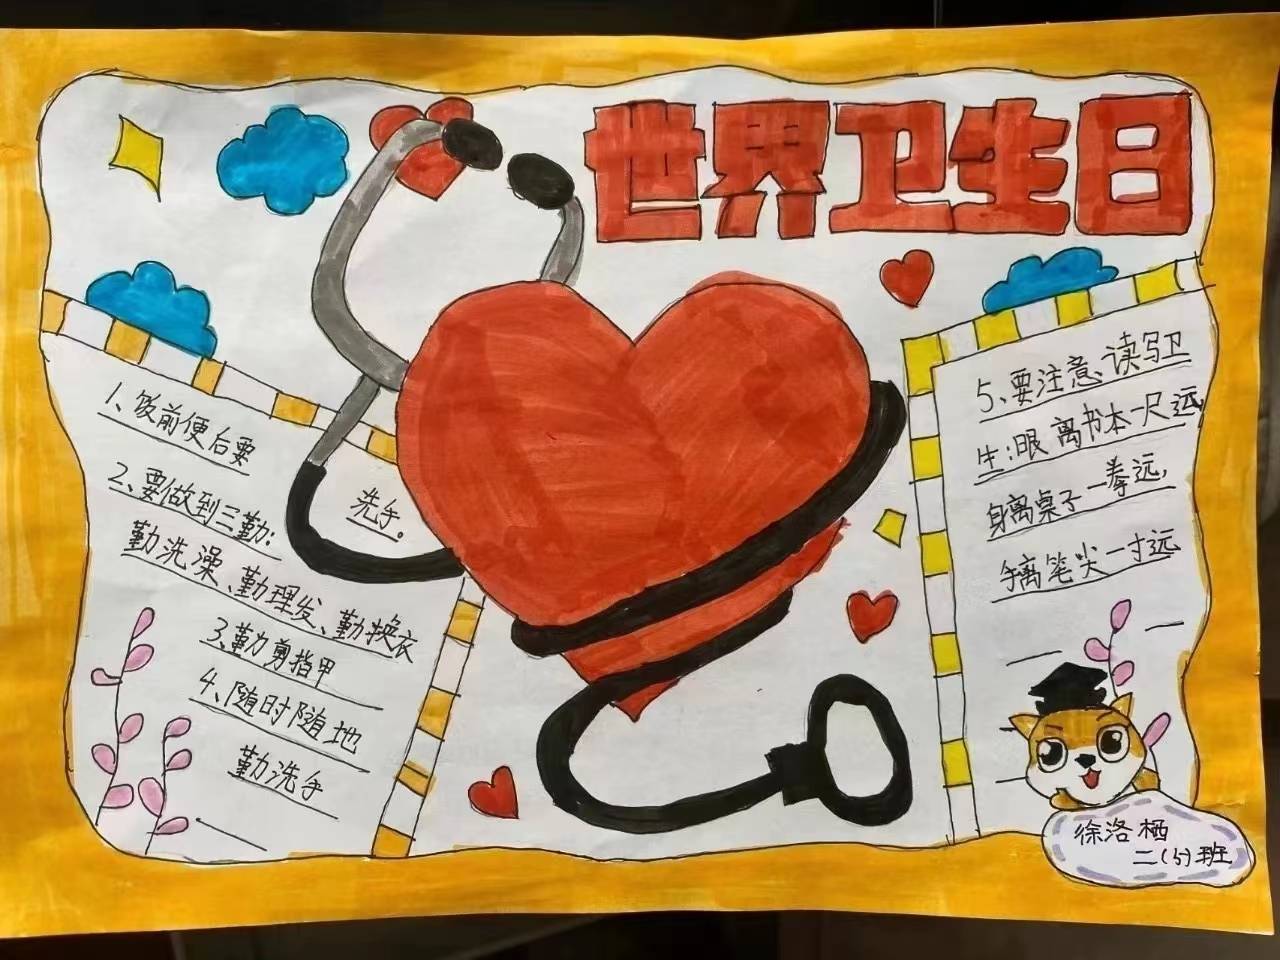 世界卫生日
1、饭前便后要
洗手。
2、要做到三勤:
勤洗澡、勤理发、勤换衣
3、勤剪指甲
4、随时随地
勤洗手
5、要注意读写卫
生:眼离书本一尺远
身离桌子一拳远,
手离笔尖一寸远
徐洛栖
二(5)班